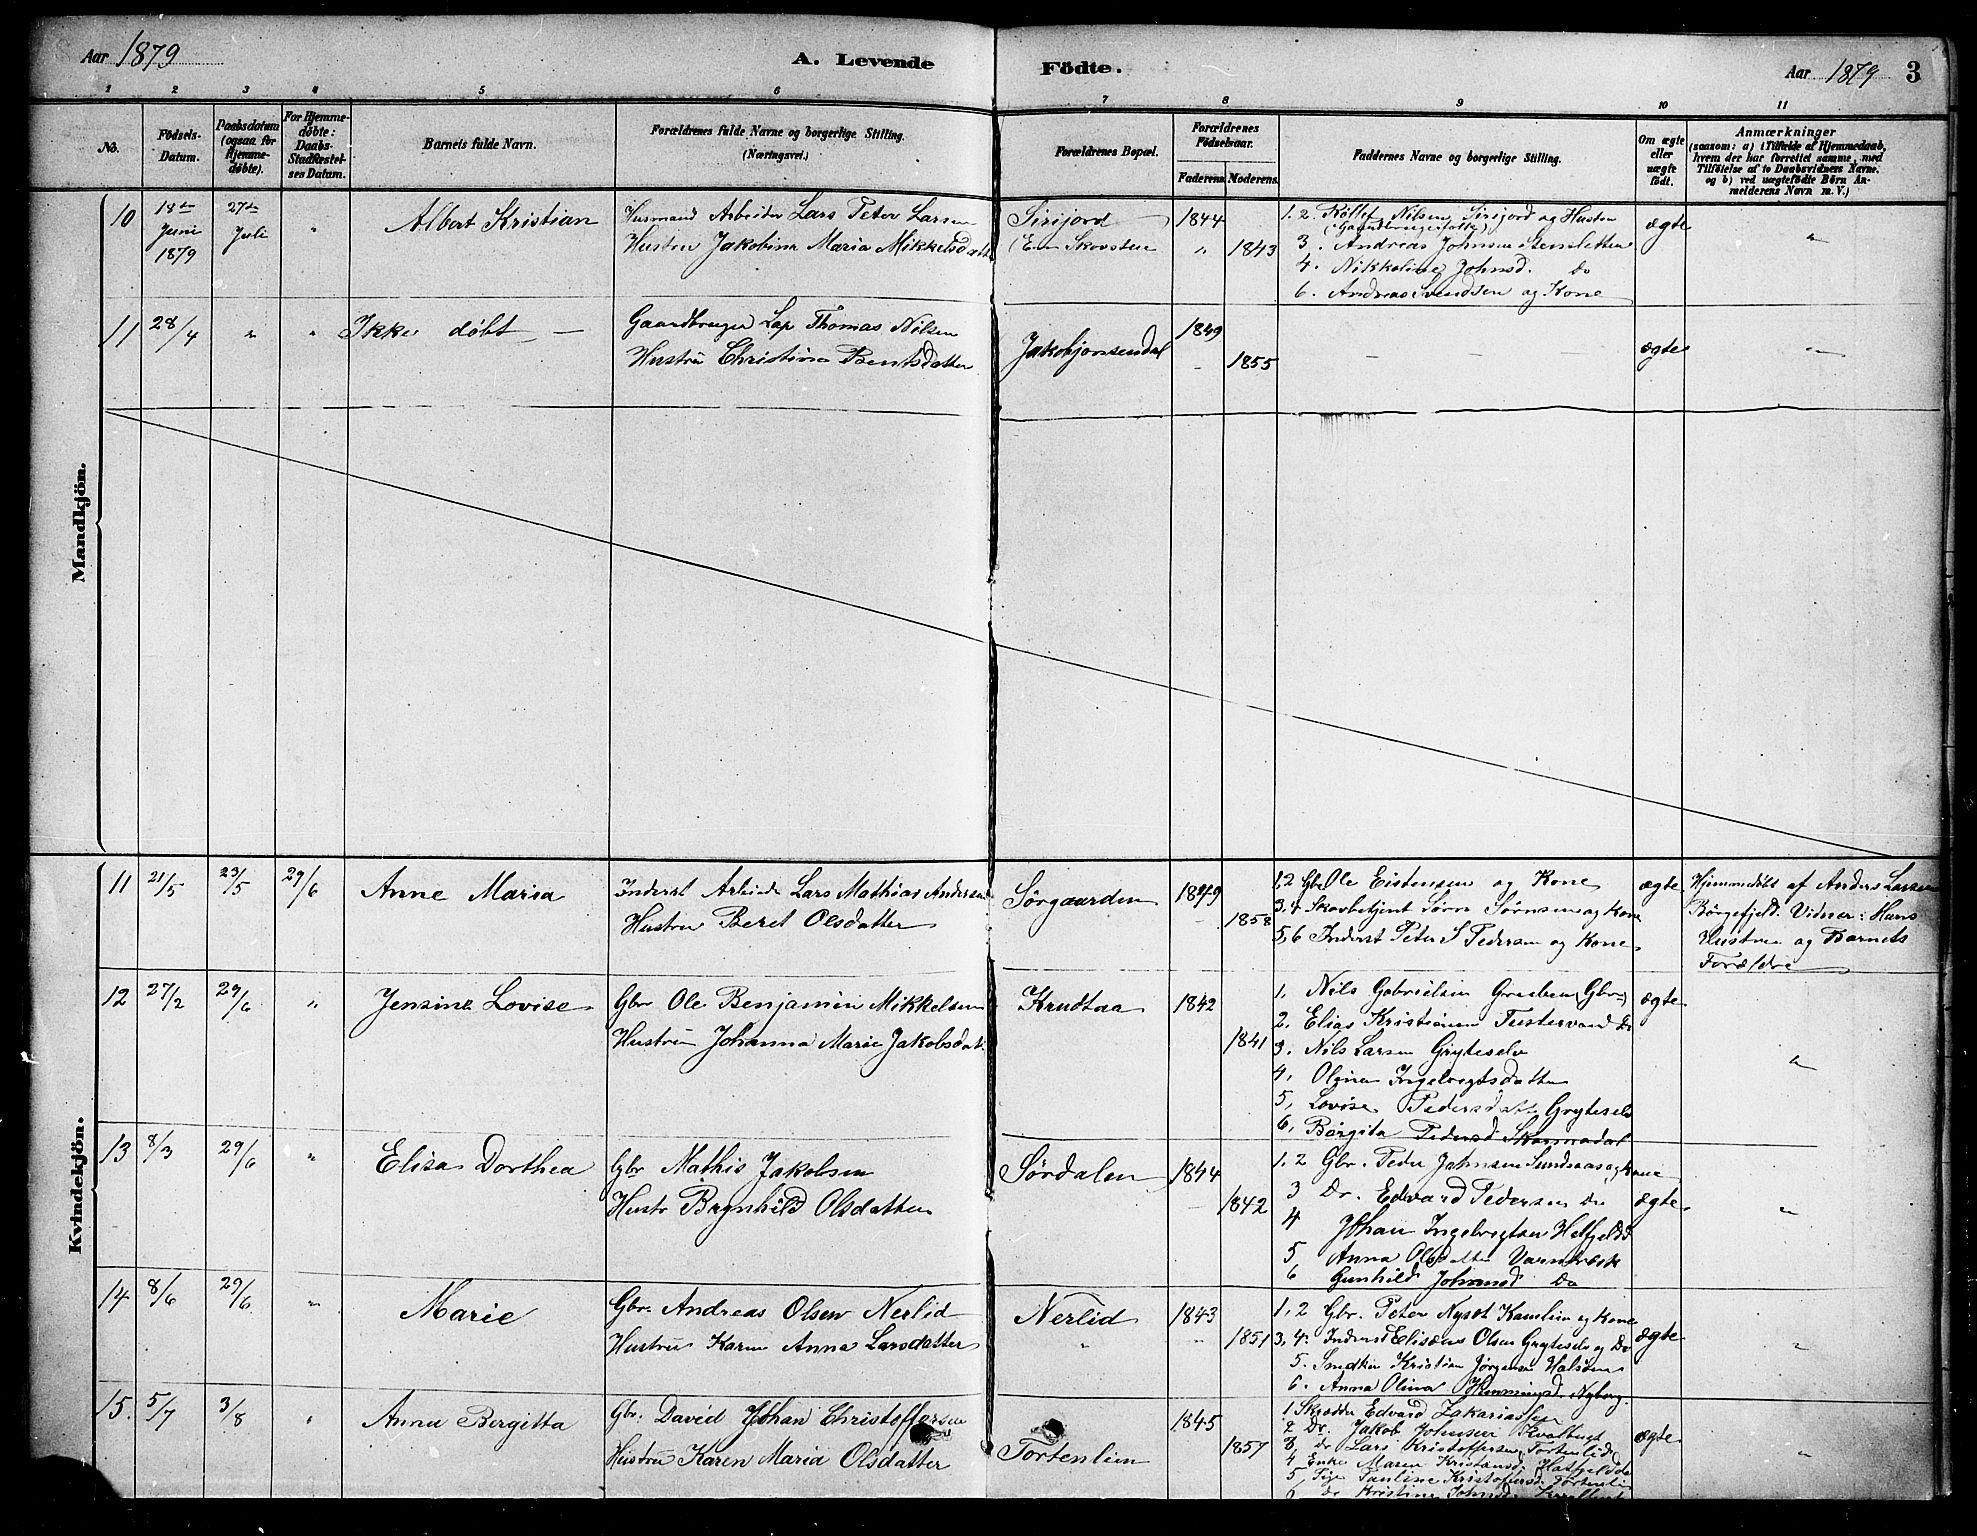 Aar 1879 A. Levende Födte. Aar 1879 3
1 2 3 4 5 6 7 8 9 10 11
No. Födsels-Datum. Daabsdatum (ogsaa for Hjemmedöbte). For Hjemmedöbte: Daabs-Stadfæstelses Datum. Barnets fulde Navn. Forældrenes fulde Navne og borgerlige Stilling. (Næringsvei.) Forældrenes Bopæl. Forældrenes Födselsaar. Faderens Moderens. Faddernes Navne og borgerlige Stilling. Om ægte eller uægte födt. Anmærkninger (saasom: a) i Tilfælde af Hjemmedaab, hvem der har forrettet samme, med Tilföielse af to Daabsvidners Navne. og b) ved uægtefödte Börn Anmelderens Navn m. V.)
Mandkjön.
10 18de Juni 1879 27de Juli " Albert Kristian
Husmand Arbeider Lars Peter Larsen
Hustru Jakobine Maria Mikkelsdatt
Sirijord
1844 " 1843
1. 2. Nilsen Sirijord og Hustru
3. Andreas Johnsen Stensletten
4. Nikkoline Johnsd. Do
6. Andreas Svendsen og Kone
ægte "
11 28/4 " " Ikke döbt —
Gaardbruger Lap Thomas Nilsen
Hustrü Christine Bentsdatter
Jakobjonsendal
1849 - 1855 — — ægte "
Kvindekjön.
11 21/5 23/5 29/6 Anne Maria
Inderst Arbeider Lars Mathias Andersen
Hustru Beret Olsdatter
Sørgaarden
1849 1858
1,2 Gbr Ole Eistensen og Kone
3,4 Skovbetjent Sørn Sørnsen og Kone
5,6 Inderst Peter S Pedersen og Kone
ægte
Hjemmedöbt af Anders Larsen
Börgefjeld. Vidner: Hans
Hustru og Barnets
Forældre
12 27/2 29/6 " Jensine Lovise
Gbr Ole Benjamin Mikkelsen
Hustrü Johanna Marie Jakobsdat.
Krudtaa
1842 1841
1, Nils Gabrielsen Gresben (Gbr)
2. Elias Kristiansen Tustervand Do
3. Nils Larsen Gryteselv
4, Oline Ingebrigtsdatter
5, Lovise Pedersdatter Gryteselv
6, Börgita Pedersd Skarmodal
ægte "
13 8/3 29/6 " Elisa Dorthea
Gbr Mathis Jakobsen
Hustr Brynhild Olsdatter
Sørdalen
1844 1842
1, 2 Gbr. Peder Johnsen Sundsaas og Kone
3 Do. Edvard Pedersen Do
4 Johan Ingebrigtsen Hatfjelld
5 Anna Olsdatter
6 Gunhild Johnsd Do
ægte "
14 8/6 29/6 " Marie
Gbr. Andreas Olsen Nerlid
Hustru Karen Anna Larsdatter
Nerlid "
1843 " 1851
1, 2 Gbr. Peter Kamlien og Kone
3, 4. Inderst Elisæus Olsen Gryteselv og Do
5. Kristian Jörgensen
6. Anna Olina Henningsd. Nyberg.
ægte "
15. 5/7 3/8 " Anna Bergitta
Gbr. David Johan Christoffersen
Hustrü Karen Maria Olsdatter
Tortenlien
1845 1857
1. Skrædder Edvard Zakariassen
2 Do. Jakob Johnsen Kvalbugt
3, Do Lars Kristoffersen Tortenlid
4 Enke Maren Kristensd. Hatfjelldal
5, Pige Pauline Kristoffersd. Tortenlien
6 Do Kristine Johnsd.
ægte "